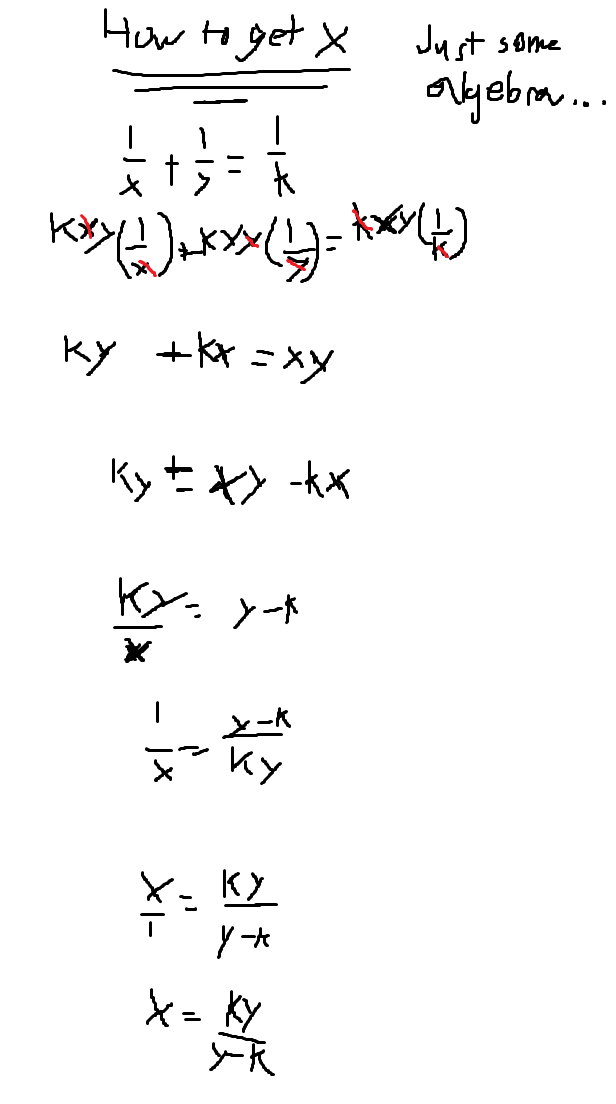 How to get x
Just some
algebra...
1/x + 1/y = 1/k
kxy(1/x) + kyx(1/y) = kxy(1/k)
ky + kx = xy
ky = xy - kx
ky/x = y - k
1/x = y-k/ky
x/1 = ky/y-k
x = ky/y-k